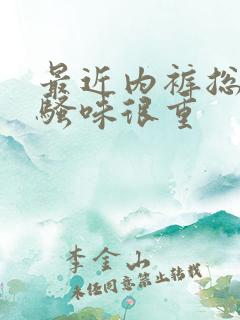 最近内裤总
骚味很重
李金山
未经同意禁止转载